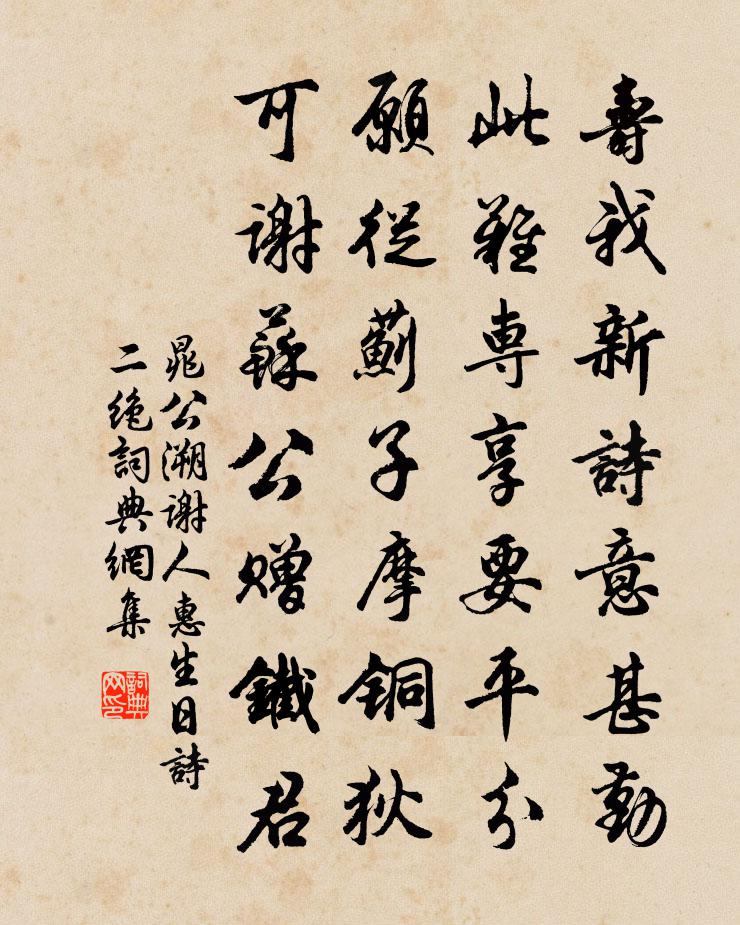 壽我新詩意甚勤
此難専享要平分
願從薊子摩銅狄
可謝蘇公贈鐵君
晁公溯謝人惠生日詩
二絶詞典網集
詞典
网印